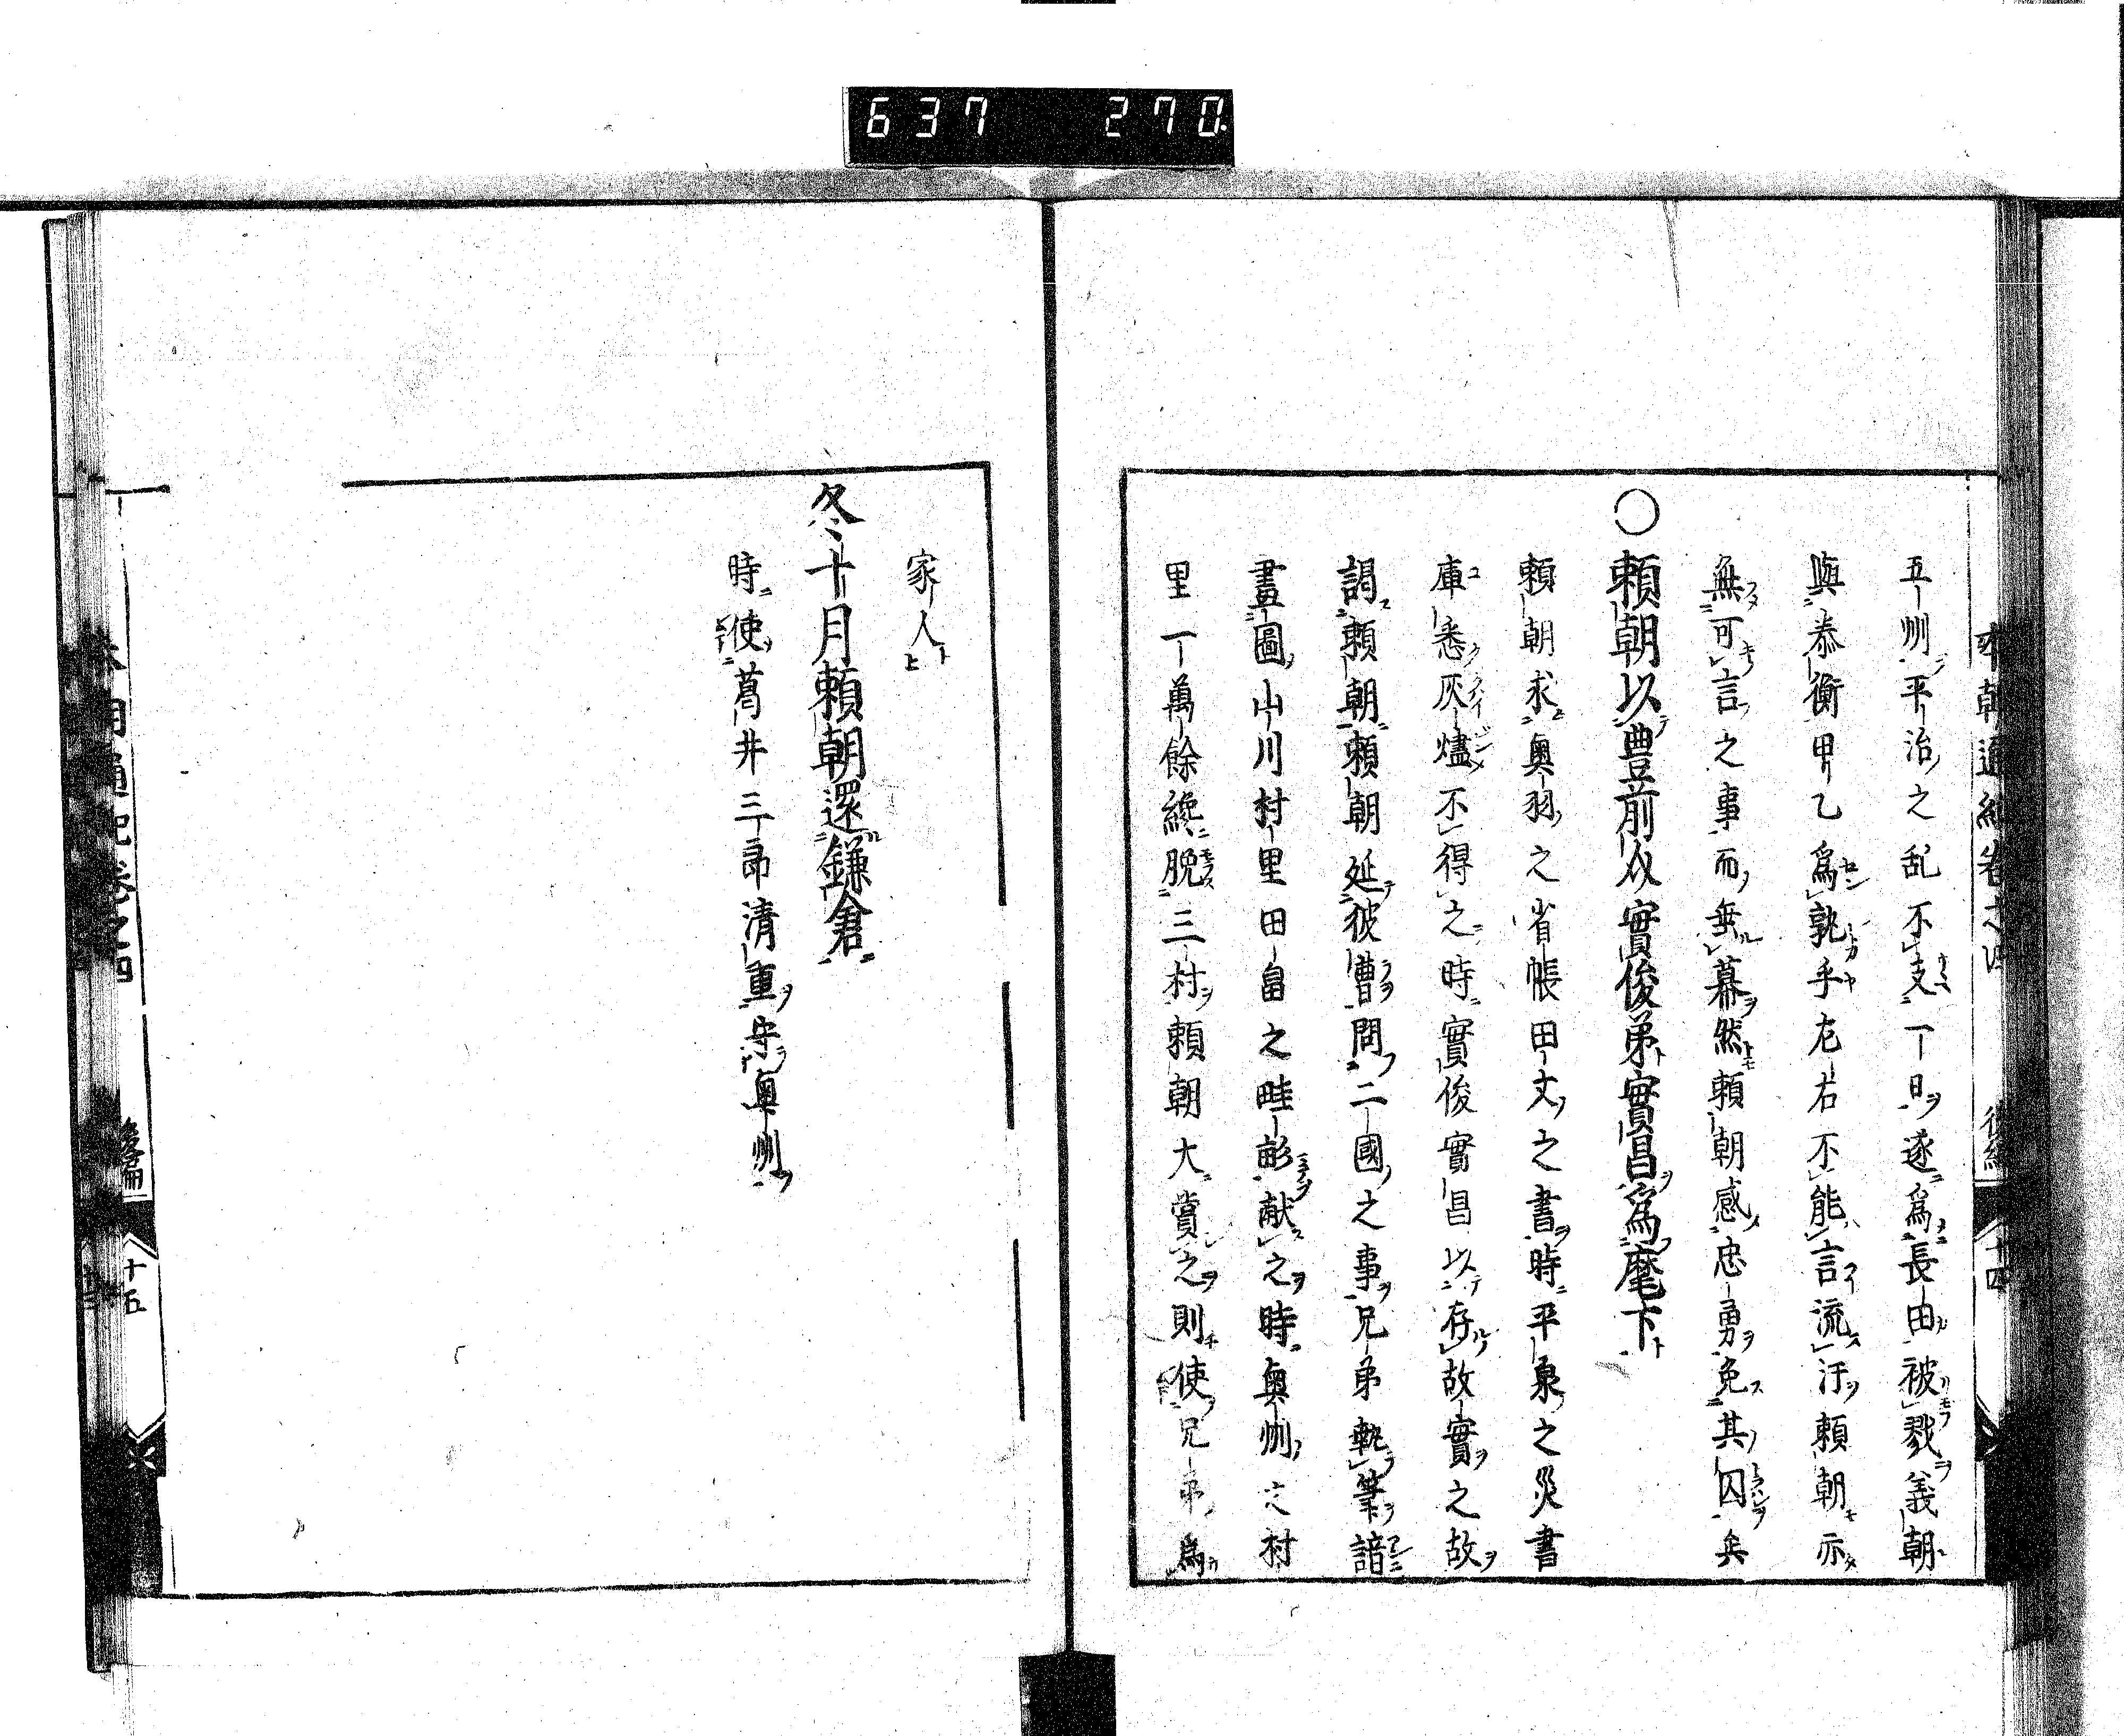 637 270
本朝通紀卷之四 後編 十四
五州平治之乱不支一日遂為長田被戮義朝
與泰衡甲乙為孰乎左右不能言流汗頼朝亦
無可言之事而無幕然頼朝感忠勇免其囚矣
○頼朝以豊前介實俊弟實昌為麾下
頼朝求奥羽之省帳田文之書時平泉之災書
庫悉灰燼不得之時實俊實昌以存故實之故
謁頼朝頼朝延彼曹問二國之事兄弟執筆諳
畫圖山川村里田畠之畦畝献之時奥州之村
里一萬餘纔脱三村頼朝大賞之則使兄弟為
家人
冬十月頼朝還鎌倉
時使葛井三郎清重守奥州
本朝通紀卷之四 後編 十五